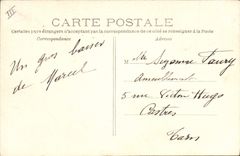 III
CARTE POSTALE
Certains pays étrangers n'acceptant pas la correspondance de ce côté se renseigner à la Poste
Correspondance
Adresse
Un gros baiser
de Marcel
Mlle Suzanne Faury
Ameublement
5 rue Victor Hugo
Castres
Tarn